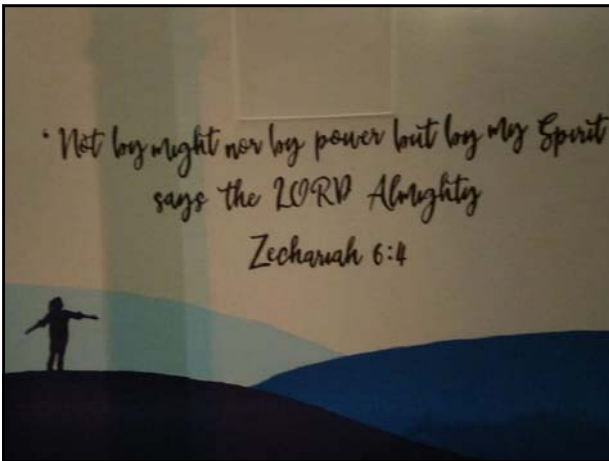 "Not by might nor by power but by my Spirit
says the LORD Almighty
Zechariah 6:4